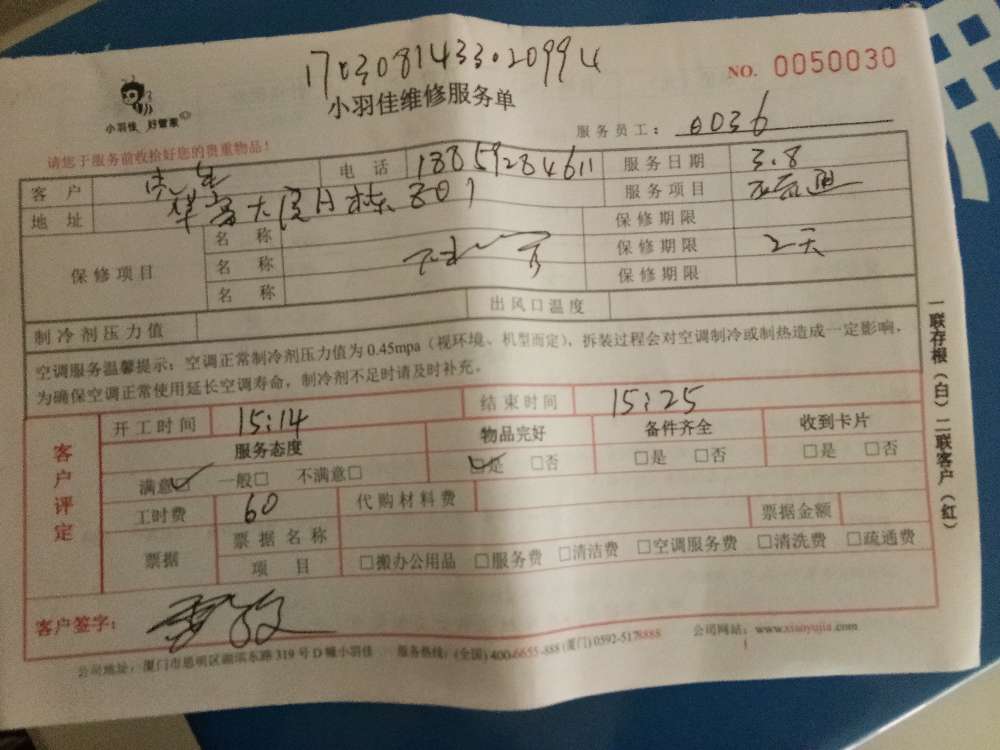 1703081433020994
NO. 0050030
小羽佳 好管家
小羽佳维修服务单
服务员工: 0036
请您于服务前收拾好您的贵重物品!
客户 电话 18859284611 服务日期 3.8
地址 华富大厦A栋801 服务项目
保修项目 名称 保修期限
名称 保修期限 2天
名称 保修期限
制冷剂压力值 出风口温度
空调服务温馨提示:空调正常制冷剂压力值为0.45mpa(视环境、机型而定),拆装过程会对空调制冷或制热造成一定影响,
为确保空调正常使用延长空调寿命,制冷剂不足时请及时补充。
客户评定 开工时间 15:14 结束时间 15:25
服务态度 物品完好 备件齐全 收到卡片
满意☑ 一般□ 不满意□ ☑是 □否 □是 □否 □是 □否
工时费 60 代购材料费 票据金额
票据 票据名称
项目 □搬办公用品 □服务费 □清洁费 □空调服务费 □清洗费 □疏通费
客户签字:
公司地址:厦门市思明区湖滨东路319号D幢小羽佳 服务热线:(全国)400-6655-888(厦门)0592-5178888 公司网站:www.xiaoyujia.com
一联存根(白)二联客户(红)